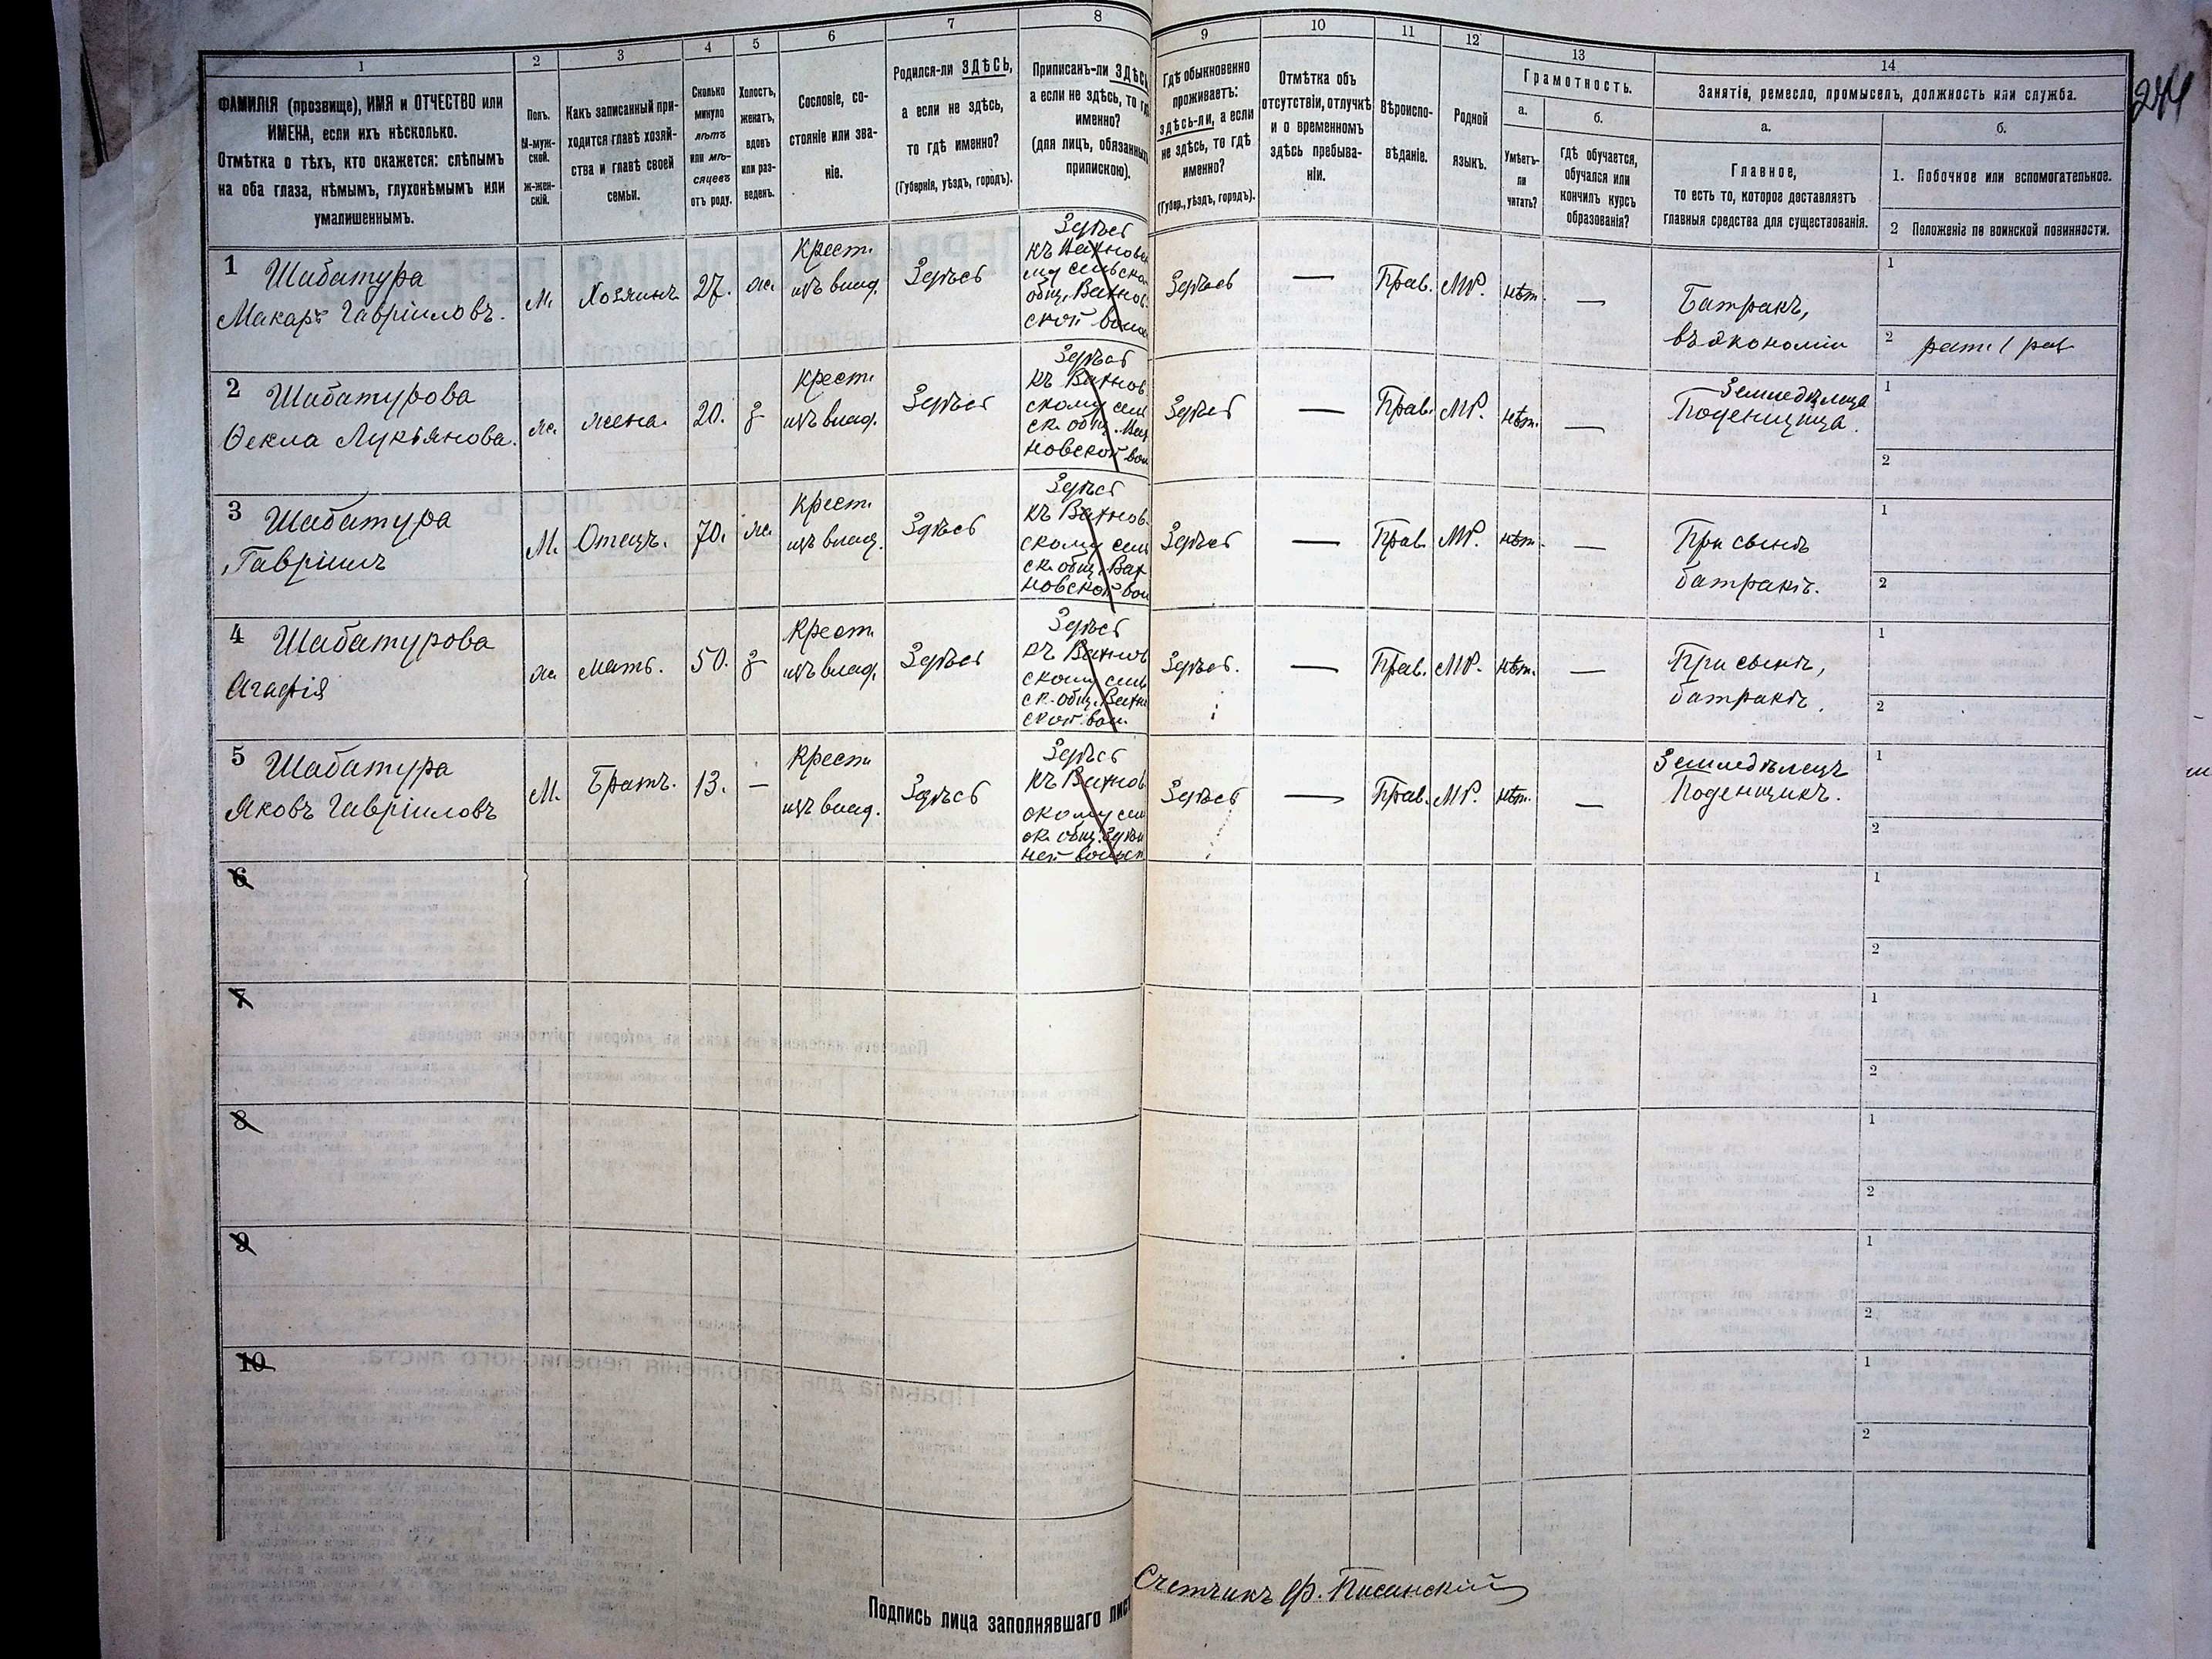 1
2
3
4
5
6
7
8
9
10
11
12
13
14
ФАМИЛІЯ (прозвище), ИМЯ и ОТЧЕСТВО или
ИМЕНА, если ихъ нѣсколько.
Отмѣтка о тѣхъ, кто окажется: слѣпымъ
на оба глаза, нѣмымъ, глухонѣмымъ или
умалишеннымъ.
Полъ.
М-муж-
ской.
ж-жен-
скій.
Какъ записанный при-
ходится главѣ хозяй-
ства и главѣ своей
семьи.
Сколько
минуло
лѣтъ
или мѣ-
сяцевъ
отъ роду.
Холостъ,
женатъ,
вдовъ
или раз-
веденъ.
Сословіе, со-
стояніе или зва-
ніе.
Родился-ли ЗДѢСЬ,
а если не здѣсь,
то гдѣ именно?
(Губернія, уѣздъ, городъ).
Приписанъ-ли ЗДѢСЬ
а если не здѣсь, то гдѣ
именно?
(для лицъ, обязанныхъ
припискою).
Гдѣ обыкновенно
проживаетъ:
здѣсь-ли, а если
не здѣсь, то гдѣ
именно?
(Губер., уѣздъ, городъ).
Отмѣтка объ
отсутствіи, отлучкѣ
и о временномъ
здѣсь пребыва-
ніи.
Вѣроиспо-
вѣданіе.
Родной
языкъ.
Грамотность.
а.
Умѣетъ-
ли
читать?
б.
гдѣ обучается,
обучался или
кончилъ курсъ
образованія?
Занятіе, ремесло, промыселъ, должность или служба.
а.
Главное,
то есть то, которое доставляетъ
главныя средства для существованія.
б.
1. Побочное или вспомогательное.
2 Положеніе по воинской повинности.
274
1 Шабатура
Макаръ Гавріиловъ.
М.
Хозяинъ
27.
ж.
Крест.
изъ влад.
Здѣсь
Здѣсь
къ Вахнов
ому сельско
общ. Вахнов
ской воло
Здѣсь
—
Прав.
МР.
нѣт.
—
Батракъ,
въ экономіи
1
2 рат. 1 раз
2 Шабатурова
Ѳекла Лукьянова.
ж.
жена.
20.
з
Крест.
изъ влад.
Здѣсь
Здѣсь
къ Вахнов
скому сель
ск. общ. Вах
новской вол
Здѣсь
—
Прав.
МР.
нѣт.
—
Земледѣлица
Поденщица.
1
2
3 Шабатура
Гавріилъ
М.
Отецъ.
70.
ж.
Крест.
изъ влад.
Здѣсь
Здѣсь
къ Вахнов
скому сель
ск. общ. Вах
новской вол
Здѣсь
—
Прав.
МР.
нѣт.
—
При сынѣ
батракѣ.
1
2
4 Шабатурова
Агафія
ж.
мать.
50.
з
Крест.
изъ влад.
Здѣсь
Здѣсь
къ Вахнов
скому сель
ск. общ. Вахн
ской вол.
Здѣсь.
—
Прав.
МР.
нѣт.
—
При сынѣ,
батракѣ.
1
2
5 Шабатура
Яковъ Гавріиловъ
М.
Братъ.
13.
—
Крест.
изъ влад.
Здѣсь
Здѣсь
къ Вахнов
скому сель
ск. общ.
Здѣсь
—
Прав.
МР.
нѣт.
—
Земледѣлецъ
Поденщикъ.
1
2
6
1
2
7
1
2
8
1
2
9
1
2
10
1
2
Подпись лица заполнявшаго лист
Счетчикъ Ф. Писанскій